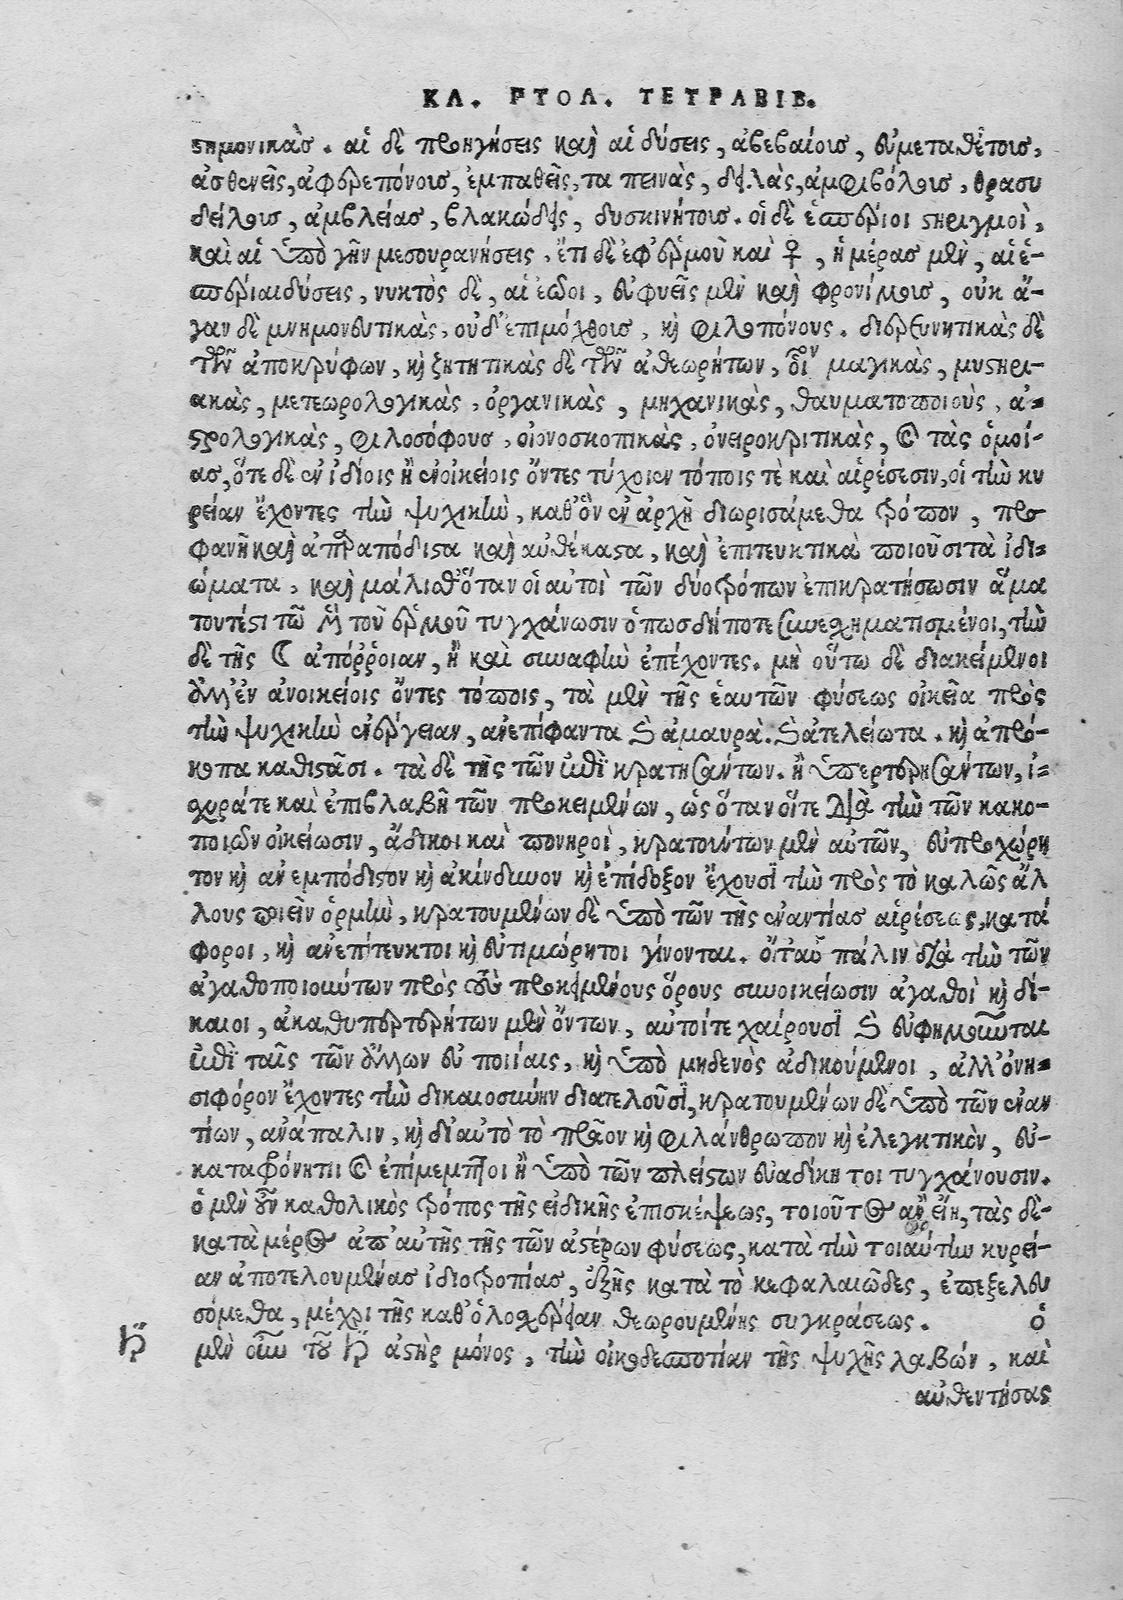 ΚΛ. ΠΤΟΛ. ΤΕΤΡΑΒΙΒ.
στημονικὰσ. αἱ δὲ προηγήσεις καὶ αἱ δύσεις, ἀβεβαίους, εὐμεταθέτους,
ἀσθενεῖς, ἀφερεπόνους, ἐμπαθεῖς, ταπεινὰς, δειλὰς, ἀμφιβόλους, θρασυ
δείλους, ἀμβλείας, βλακώδεις, δυσκινήτους. οἱ δὲ ἑσπέριοι στηριγμοὶ,
καὶ αἱ ὑπὸ γῆν μεσουρανήσεις, ἔτι δὲ ἐφ' ἑρμοῦ καὶ ♀, ἡμέρας μὲν, αἱ ἑ-
σπέριαι δύσεις, νυκτὸς δὲ, αἱ ἑῷοι, εὐφυεῖς μὲν καὶ φρονίμους, οὐκ ἄ-
γαν δὲ μνημονευτικὰς, οὐδ' ἐπιμόχθους, καὶ φιλοπόνους. διερευνητικὰς δὲ
τῶν ἀποκρύφων, καὶ ζητητικὰς δὲ τῶν ἀθεωρήτων, οἷον μαγικὰς, μυστηρι-
ακὰς, μετεωρολογικὰς, ὀργανικὰς, μηχανικὰς, θαυματοποιοὺς, ἀ-
στρολογικὰς, φιλοσόφους, οἰονοσκοπικὰς, ὀνειροκριτικὰς, καὶ τὰς ὁμοί-
ας, ὅτε δὲ ἐν ἰδίοις ἢ ἐν οἰκείοις ὄντες τύχοιεν τόποις τὲ καὶ αἱρέσεσιν, οἱ τὴν κυ
ρείαν ἔχοντες τὴν ψυχικὴν, καθ' ὃν ἐν ἀρχῇ διωρισάμεθα τρόπον, προ
φανῆ καὶ ἀπαραπόδιστα καὶ αὐθέκαστα, καὶ ἐπιτευκτικὰ ποιοῦσι τὰ ἰδι-
ώματα, καὶ μάλισθ' ὅταν οἱ αὐτοὶ τῶν δύο τρόπων ἐπικρατήσωσιν ἅμα
τουτέστι τῶ μὴ τοῦ ἑρμοῦ τυγχάνωσιν ὁπωσδήποτε συνεσχηματισμένοι, τὴν
δὲ τῆς ☾ ἀπόῤῥοιαν, ἢ καὶ συναφὴν ἐπέχοντες. μὴ οὕτω δὲ διακείμενοι
ἀλλ' ἐν ἀνοικείοις ὄντες τόποις, τὰ μὲν τῆς ἑαυτῶν φύσεως οἰκεῖα πρὸς
τὴν ψυχικὴν ἐνέργειαν, ἀνεπίφαντα καὶ ἀμαυρὰ. καὶ ἀτελείωτα. καὶ ἀπρό-
κοπα καθιστᾶσι. τὰ δὲ τῆς τῶν ἐπικρατησάντων. ἢ ὑπερτερησάντων, ἰ-
σχυράτε καὶ ἐπιβλαβῆ τῶν προκειμένων, ὡς ὅταν οἵτε διὰ τὴν τῶν κακο-
ποιῶν οἰκείωσιν, ἄδικοι καὶ πονηροὶ, κρατούντων μὲν αὐτῶν, εὐπροχώρη
τον καὶ ἀνεμπόδιστον καὶ ἀκίνδυνον καὶ ἐπίδοξον ἔχουσι τὴν πρὸς τὸ κακῶς ἄλ
λους ποιεῖν ὁρμὴν, κρατουμένων δὲ ὑπὸ τῶν τῆς ἐναντίας αἱρέσεως, κατά
φοροι, καὶ ἀνεπίτευκτοι καὶ εὐτιμώρητοι γίνονται. οἵτ' αὖ πάλιν διὰ τὴν τῶν
ἀγαθοποιούντων πρὸς τοὺς προκειμένους ὅρους συνοικείωσιν ἀγαθοὶ καὶ δί-
καιοι, ἀκαθυπερτερήτων μὲν ὄντων, αὐτοίτε χαίρουσι καὶ εὐφημοῦνται
ἐπὶ ταῖς τῶν ἄλλων εὐποιίαις, καὶ ὑπὸ μηδενὸς ἀδικούμενοι, ἀλλ' ὀνη-
σιφόρον ἔχοντες τὴν δικαιοσύνην διατελοῦσι, κρατουμένων δὲ ὑπὸ τῶν ἐναν
τίων, ἀνάπαλιν, καὶ δι' αὐτὸ τὸ πρᾶον καὶ φιλάνθρωπον καὶ ἐλεγκτικὸν, εὐ-
καταφρόνητοι καὶ ἐπίμεμπτοι ἢ ὑπὸ τῶν πλείστων εὐαδίκητοι τυγχάνουσιν.
ὁ μὲν οὖν καθολικὸς τρόπος τῆς εἰδικῆς ἐπισκέψεως, τοιοῦτος ἂν εἴη, τὰς δὲ-
κατὰ μέρος ἀπ' αὐτῆς τῆς τῶν ἀστέρων φύσεως, κατὰ τὴν τοιαύτην κυρεί-
αν ἀποτελουμένας ἰδιοτροπίας, ἑξῆς κατὰ τὸ κεφαλαιῶδες, ἐπεξελευ
σόμεθα, μέχρι τῆς καθ' ὁλοσχέρειαν θεωρουμένης συγκράσεως. ὁ
♄ μὲν οὖν τοῦ ♄ ἀστὴρ μόνος, τὴν οἰκοδεσποτίαν τῆς ψυχῆς λαβών, καὶ
αὐθεντήσας